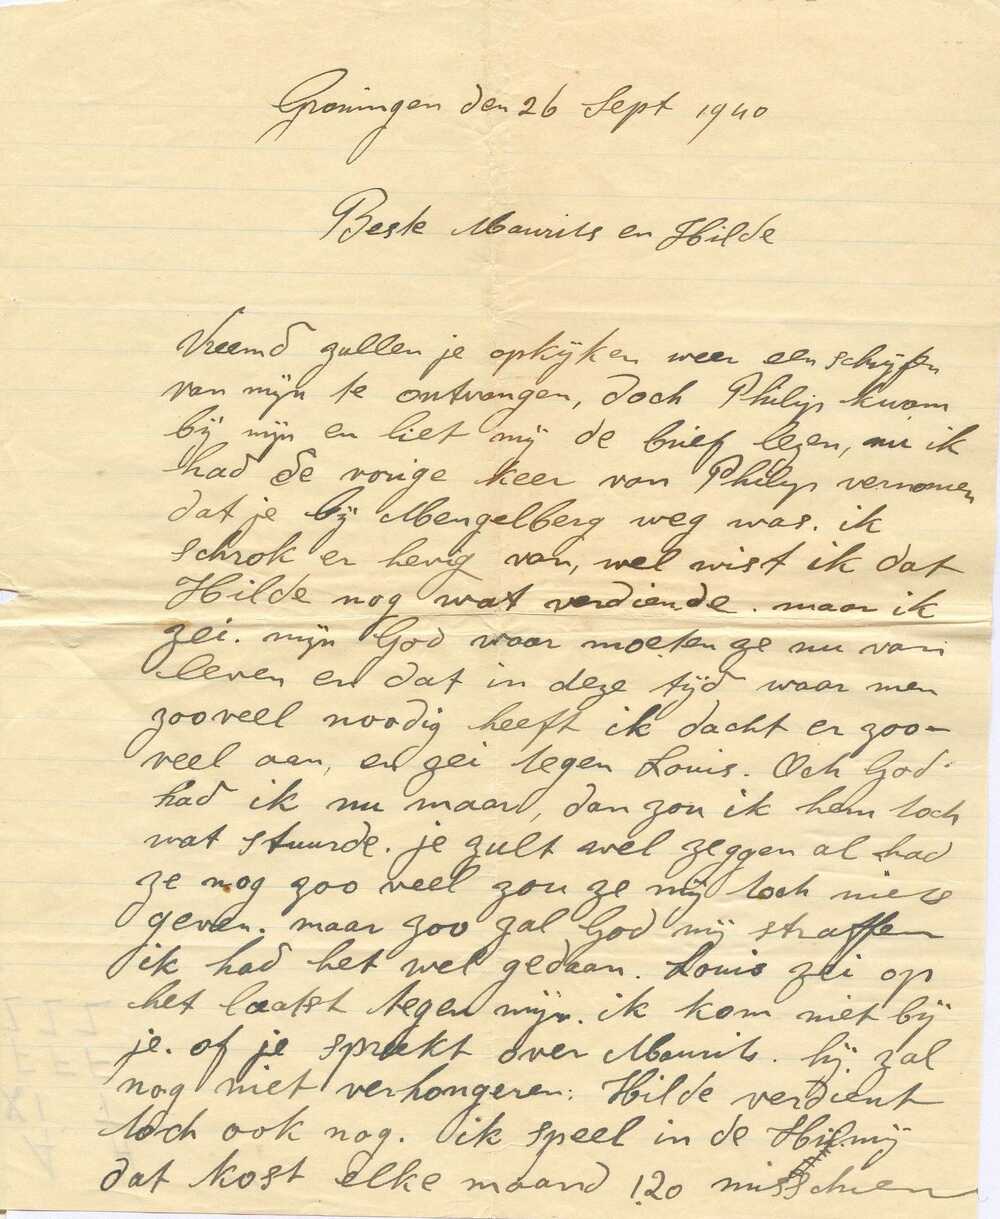 Groningen den 26 Sept 1940
Beste Maurits en Hilde
Vreemd zullen je opkijken weer een schrijfen
van mijn te ontvangen, doch Philip kwam
bij mijn en liet mij de brief lezen, nu ik
had de vorige keer van Philip vernomen
dat je bij Mengelberg weg was. ik
schrok er hevig van, wel wist ik dat
Hilde nog wat verdiende. maar ik
zei. mijn God waar moeten ze nu van
leven en dat in deze tijd waar men
zooveel noodig heeft ik dacht er zoo-
veel aan, en zei tegen Louis. Och God
had ik nu maar, dan zou ik hem toch
wat stuurde. je zult wel zeggen al had
ze nog zoo veel zou ze mij toch niets
geven. maar zoo zal God mij straffen
ik had het wel gedaan. Louis zei op
het laatst tegen mijn. ik kom niet bij
je. of je spreekt over Maurits. hij zal
nog niet verhongeren: Hilde verdient
toch ook nog. ik speel in de
dat kost elke maand 1.20 misschien